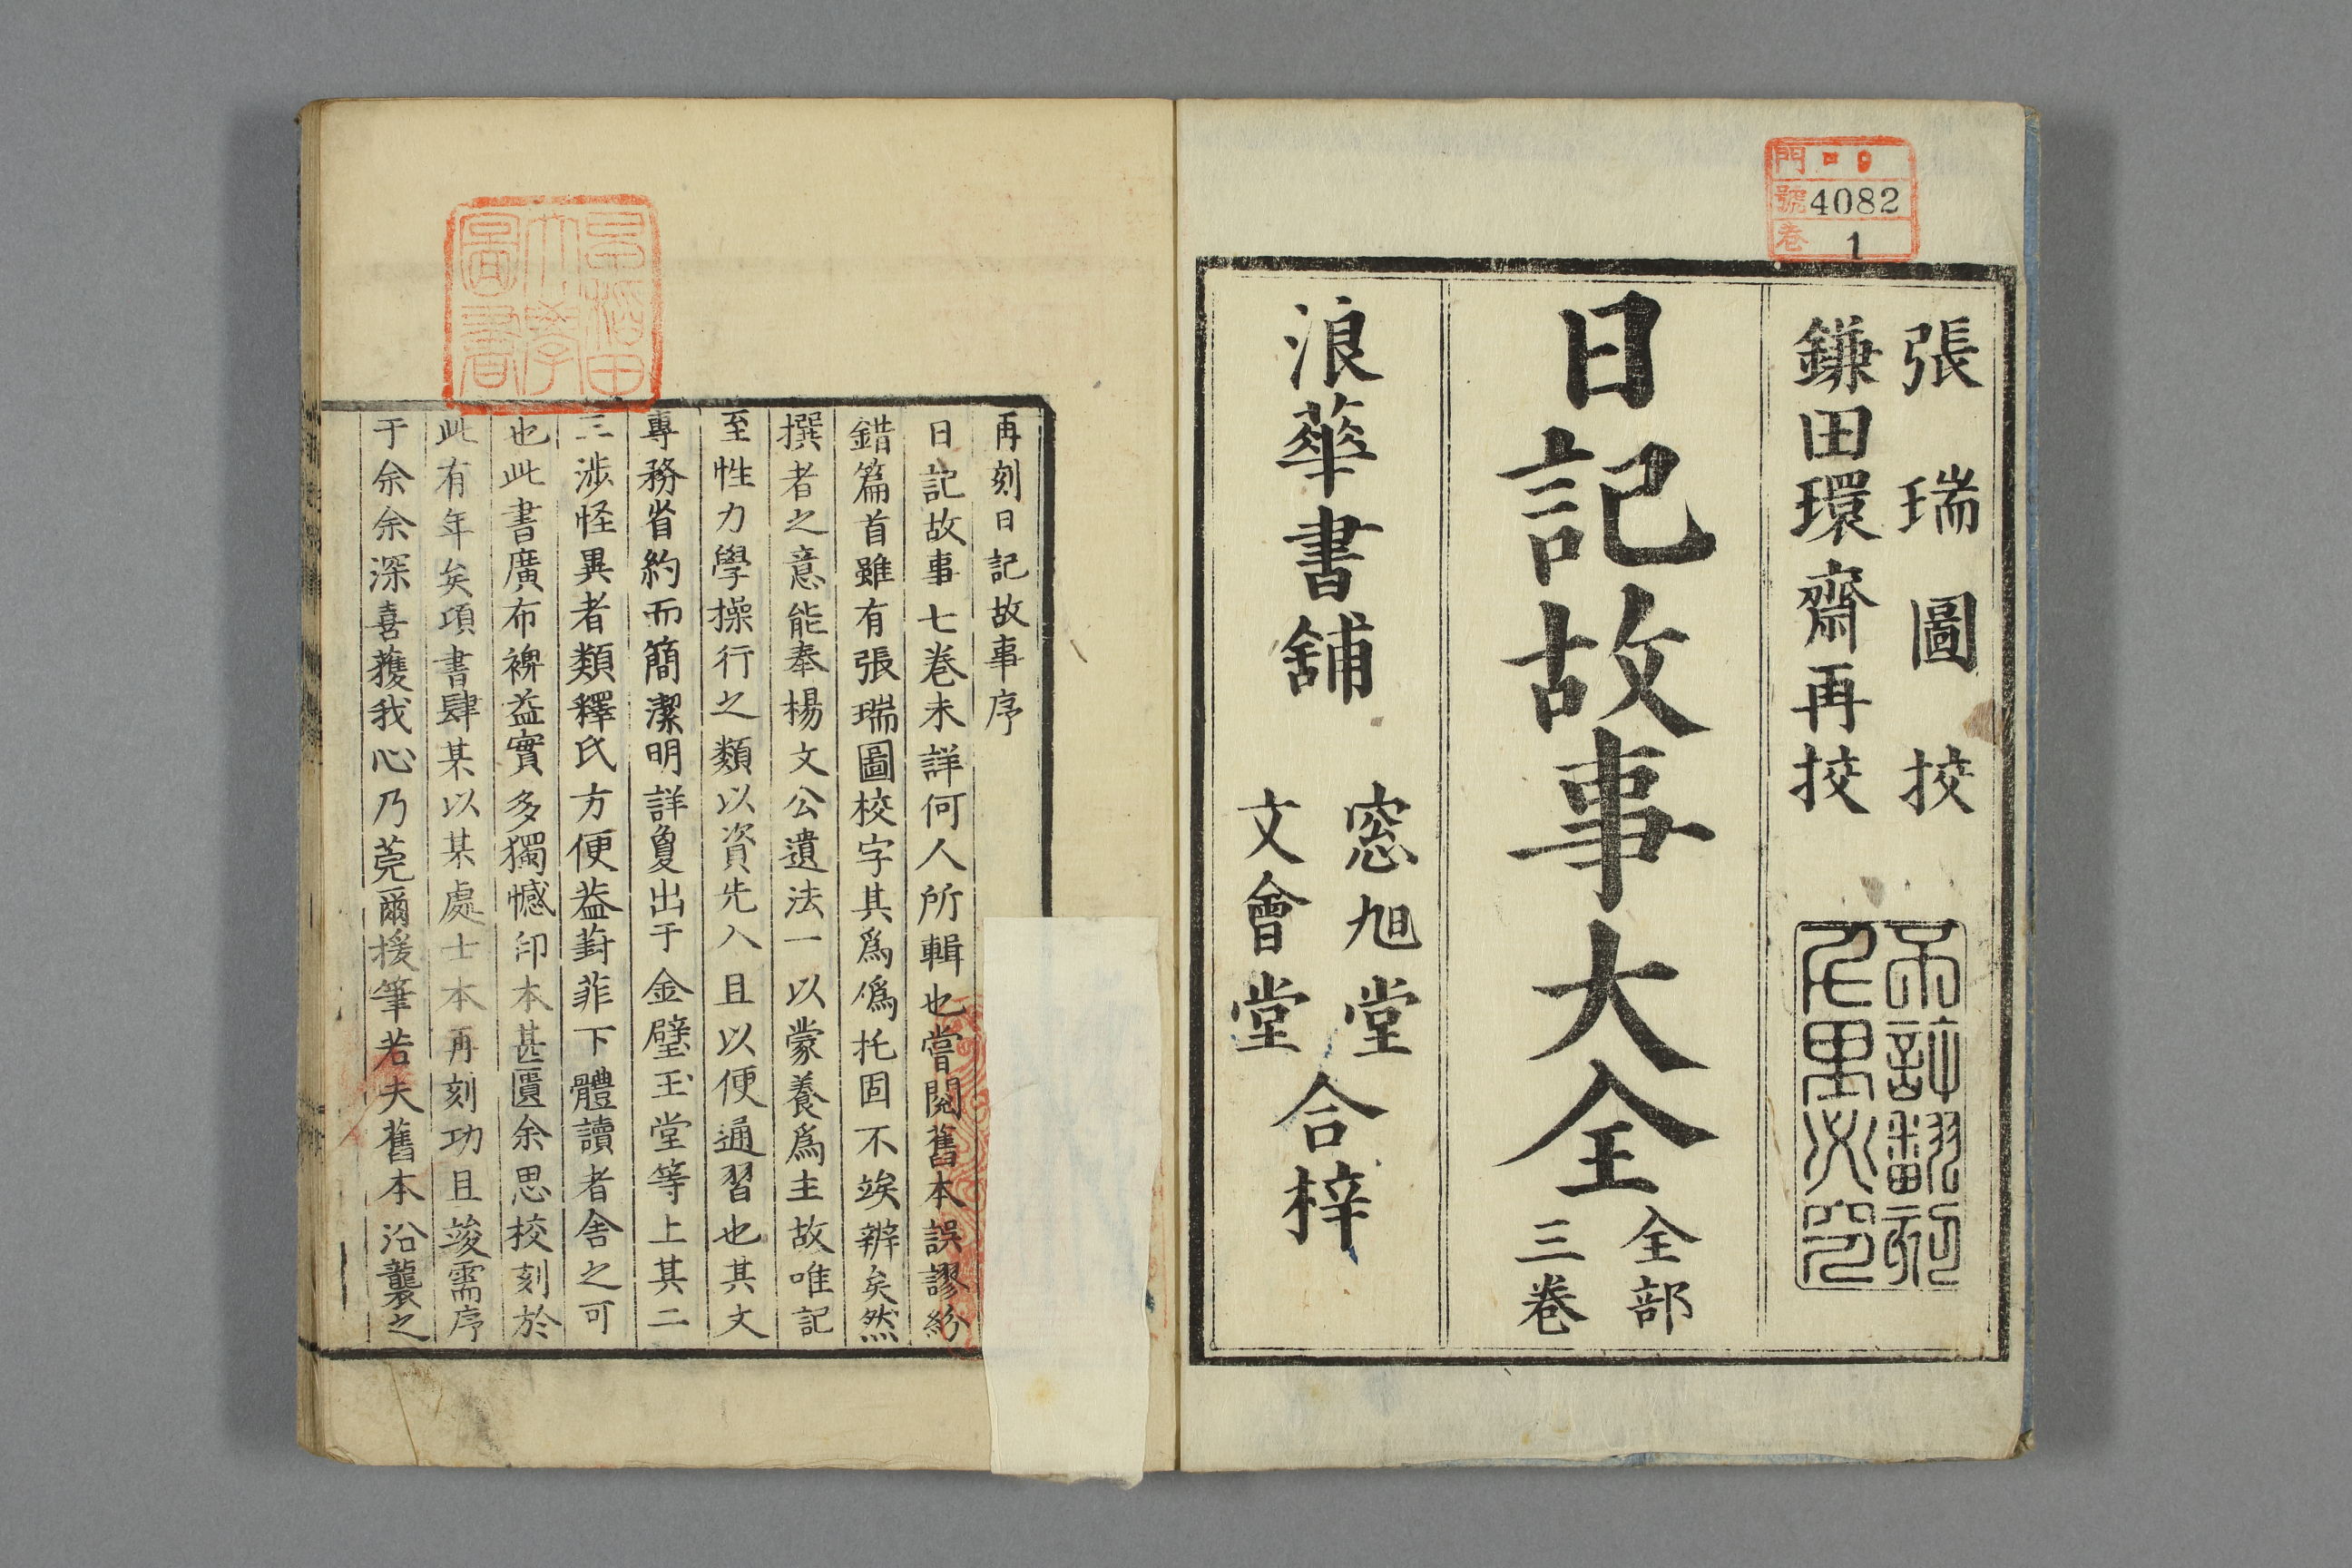 門
號 4082
卷 1
張瑞圖挍
鎌田環齋再挍
不許翻刻
千里必究
日記故事大全
全部
三卷
浪華書舖
窓旭堂
文會堂
合梓
早稻田
大學
圖書
再刻日記故事序
日記故事七卷未詳何人所輯也嘗閱舊本誤謬紛
錯篇首雖有張瑞圖校字其爲僞托固不竢辨矣然
撰者之意能奉楊文公遺法一以蒙養爲主故唯記
至性力學操行之類以資先入且以便通習也其文
專務省約而簡潔明詳夐出于金璧玉堂等上其二
三涉怪異者類釋氏方便葢葑菲下體讀者舍之可
也此書廣布裨益實多獨憾印本甚匱余思校刻於
此有年矣項書肆某以某處士本再刻功且竣需序
于余余深喜獲我心乃莞爾援筆若夫舊本沿襲之